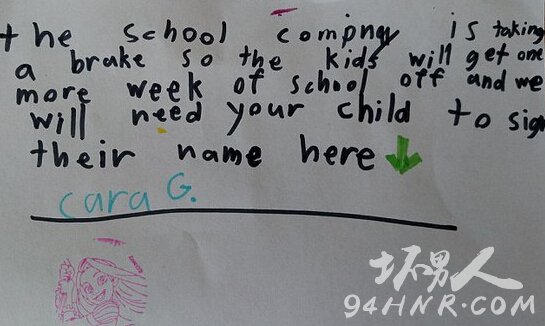 the school compngy is taking
a brake so the kids will get one
more week of school off and we
will need your child to sign
their name here
cara G.
坏男人
94HNR.COM